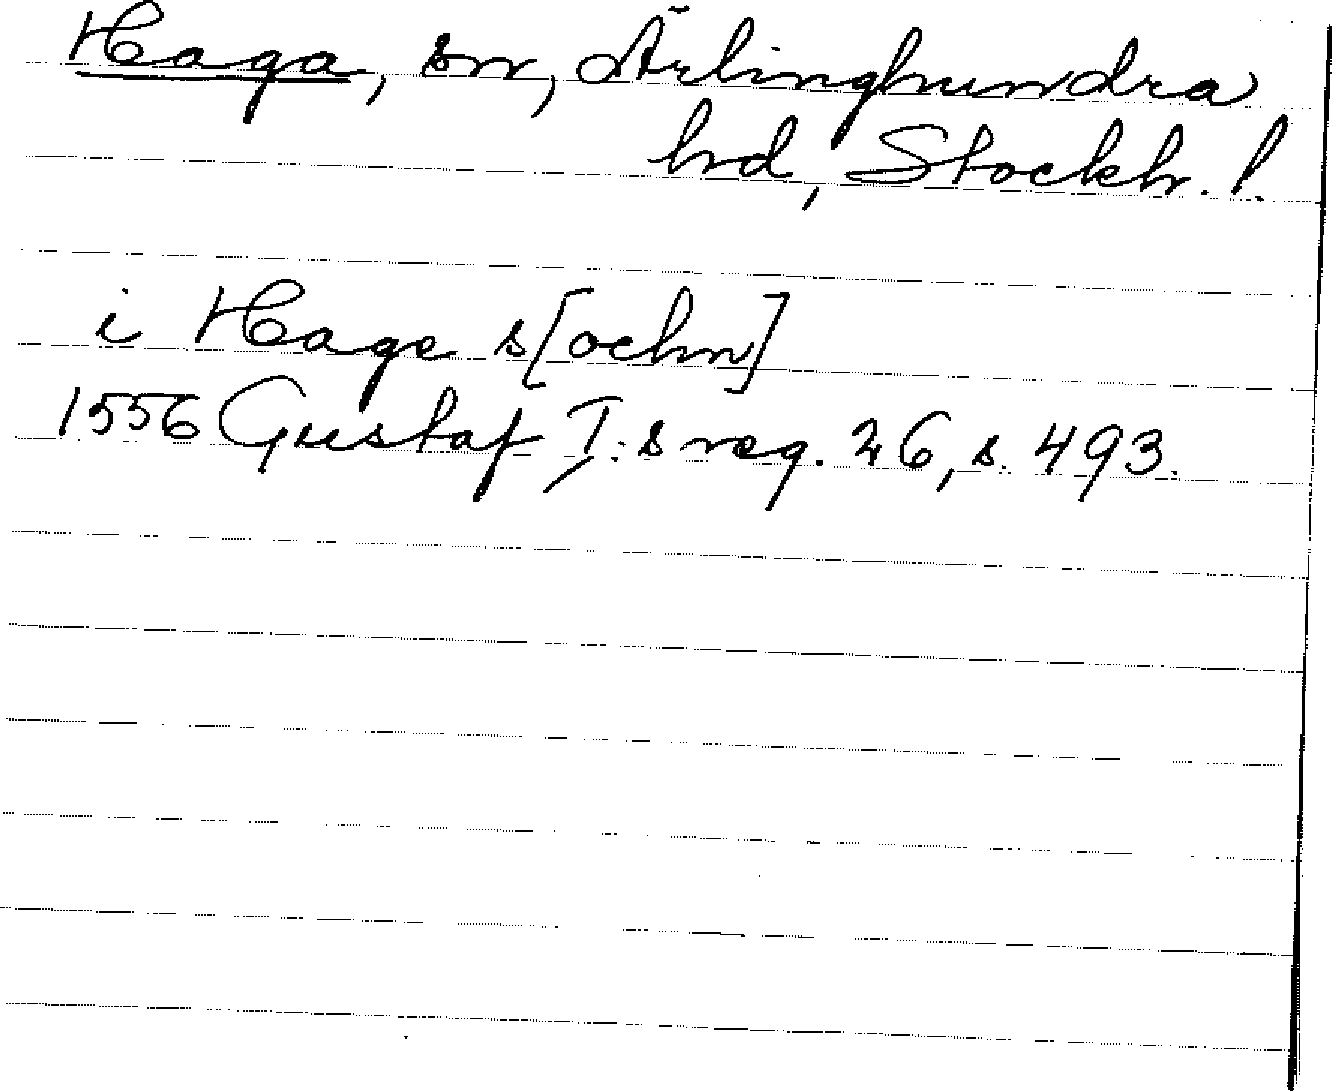 Haga, sn, Ärlinghundra
hd, Stockh. l.
i Hage s[ochn]
1556 Gustaf I:s reg. 26, s. 493.